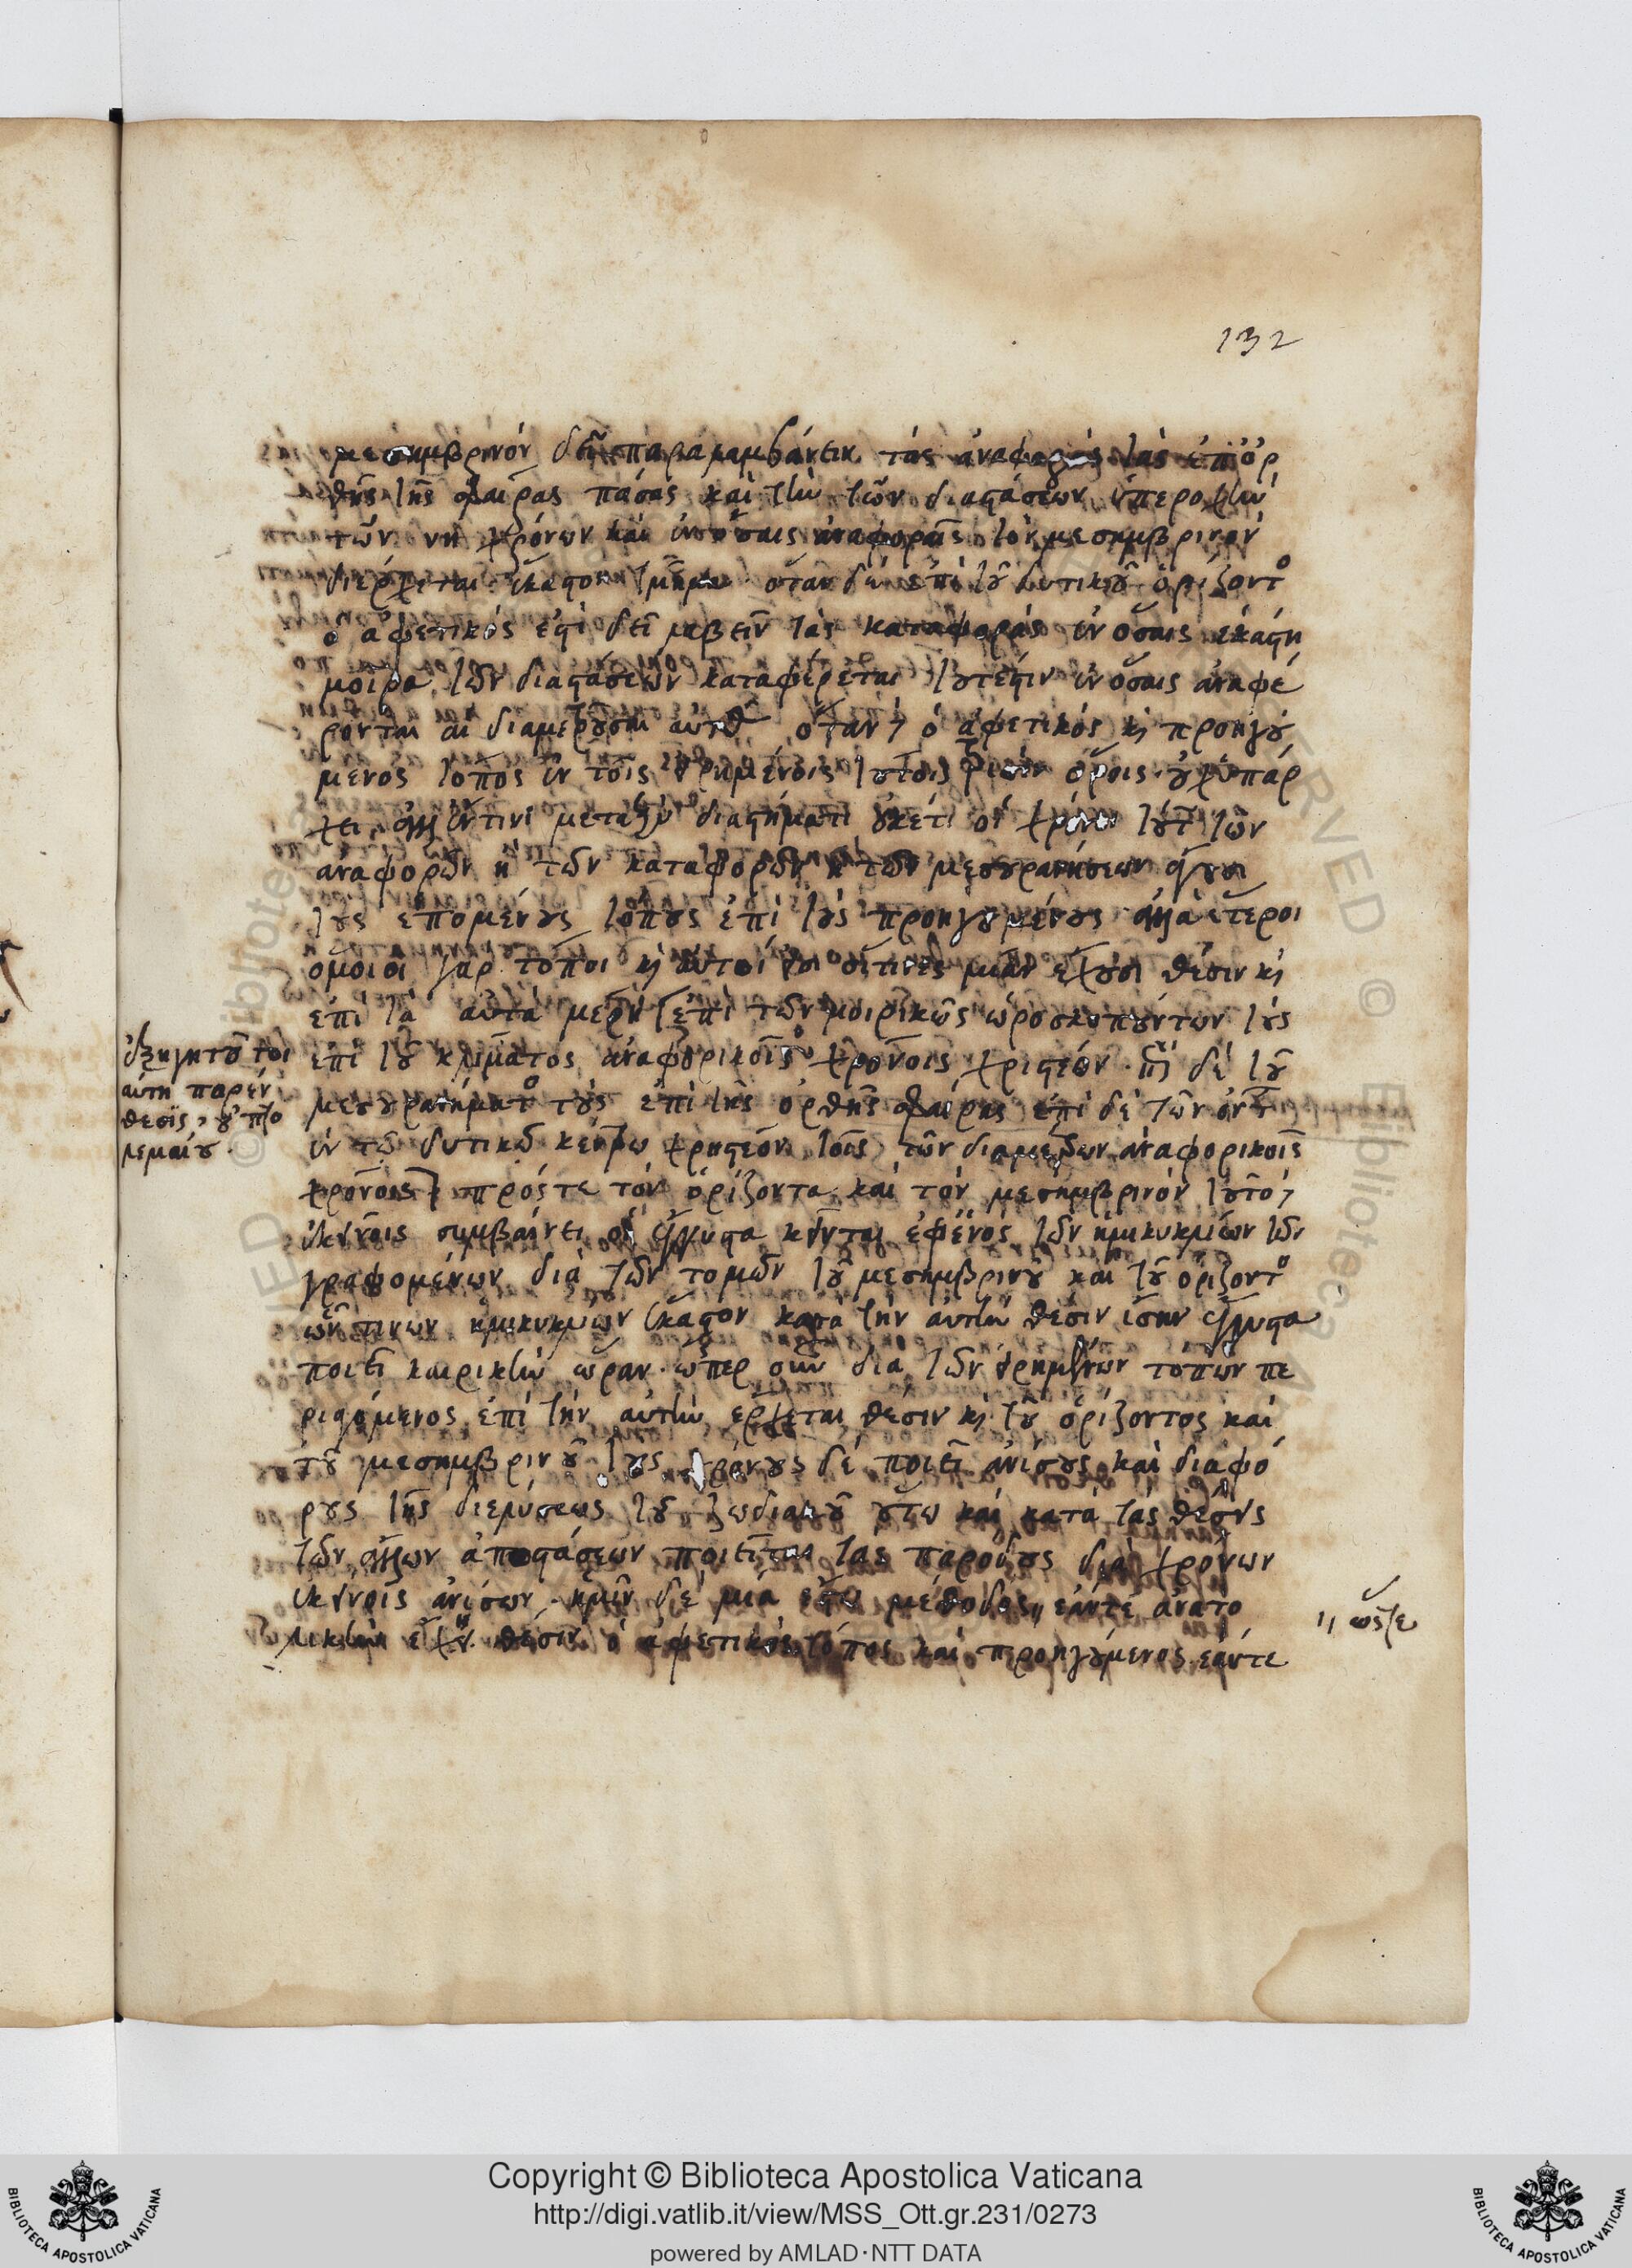 132
μεσημβρινόν δεῖ παραλαμβάνειν τάς ἀναφοράς τὰς ἐπ' ὀρ
θῆς τῆς σφαίρας πάσας καὶ τὴν τῶν διαστάσεων ὑπεροχὴν
τῶν χρόνων καὶ ἐν ὅσαις ἀναφοραῖς τὸν μεσημβρινόν
διέρχεται ἕκαστον τμῆμα ὅταν δέ ἐπὶ τοῦ δυτικοῦ ὁρίζοντος
ὁ ἀφετικός ἐστὶ δεῖ λαβεῖν τὰς καταφοράς ἐν ὅσαις ἑκάστη
μοῖρα τῶν διαστάσεων καταφέρεται τουτέστιν ἐν ὅσαις ἀναφέ
ρονται αἱ διαμετροῦσαι αὐτὰς ὅταν δὲ ὁ ἀφετικός καὶ προηγού
μενος τόπος ἐν τοῖς εἰρημένοις τούτοις τρισίν ὅροις οὐχ ὑπάρ
χει, ἀλλ' ἔν τινι μεταξύ διαστήματι οὐκέτι οἱ χρόνοι τούτων
ἀναφορῶν ἢ τῶν καταφορῶν ἢ τῶν μεσουρανήσεων ἄγουσι
τοὺς ἑπομένους τόπους ἐπὶ τοὺς προηγουμένους ἀλλὰ ἕτεροι
ὅμοιοι γαρ τόποι καὶ αὐτοί εἰσι οἵτινες μίαν ἔχουσι θέσιν καὶ
ἐπὶ τὰ αὐτὰ μέρη [ἐπὶ τῶν μοιρικῶς ὡροσκοπούντων τοὺς
ἐπὶ τοῦ κλίματος ἀναφορικοῖς χρόνοις χρηστέον ἐπὶ δὲ τοῦ
μεσουρανήματος τοὺς ἐπὶ τῆς ὀρθῆς σφαίρης ἐπὶ δὲ τῶν ὄντων
ἐν τῷ δυτικῷ κέντρῳ χρηστέον τοῖς τῶν διαμέτρων ἀναφορικοῖς
χρόνοις] πρός τε τὸν ὁρίζοντα καὶ τὸν μεσημβρινὸν τοῦτο δὲ
ἐκείνοις συμβαίνει οἳ ἔγγιστα κεῖνται ἐφ' ἑνὸς τῶν ἡμικυκλίων τῶν
γραφομένων διὰ τῶν τομῶν τοῦ μεσημβρινοῦ καὶ τοῦ ὁρίζοντος
ὧν τινων ἡμικυκλίων ἕκαστον κατὰ τὴν αὐτὴν θέσιν ἴσην ἔγγιστα
ποιεῖ καιρικὴν ὥραν. ὥσπερ οὖν διὰ τῶν εἰρημένων τόπων πε
ριστόμενος ἐπὶ τὴν αὐτὴν ἔρχεται θέσιν καὶ τοῦ ὁρίζοντος καὶ
τοῦ μεσημβρινοῦ τοὺς χρόνους δέ ποιεῖ ἀνίσους καὶ διαφό
ρους τῆς διελύσεως τοῦ ζωδιακοῦ οὕτω καὶ κατὰ τὰς θέσεις
τῶν ἄλλων ἀποστάσεων ποιεῖται τὰς παρόδους διὰ χρόνων
ἐκείνοις ἀνίσων. ἡμῖν δὲ μία ἔστω μέθοδος, ἐάν τε ἀνατο
λικὴν ἔχῃ θέσιν ὁ ἀφετικὸς τόπος καὶ προηγούμενος ἐάν τε
ἐξηγητοῦ τοι
αύτη παρέν
θεσίς, οὐ πτο
λεμαίου.
ὥστε
Copyright © Biblioteca Apostolica Vaticana
http://digi.vatlib.it/view/MSS_Ott.gr.231/0273
powered by AMLAD·NTT DATA
BIBLIOTECA APOSTOLICA VATICANA
BIBLIOTECA APOSTOLICA VATICANA